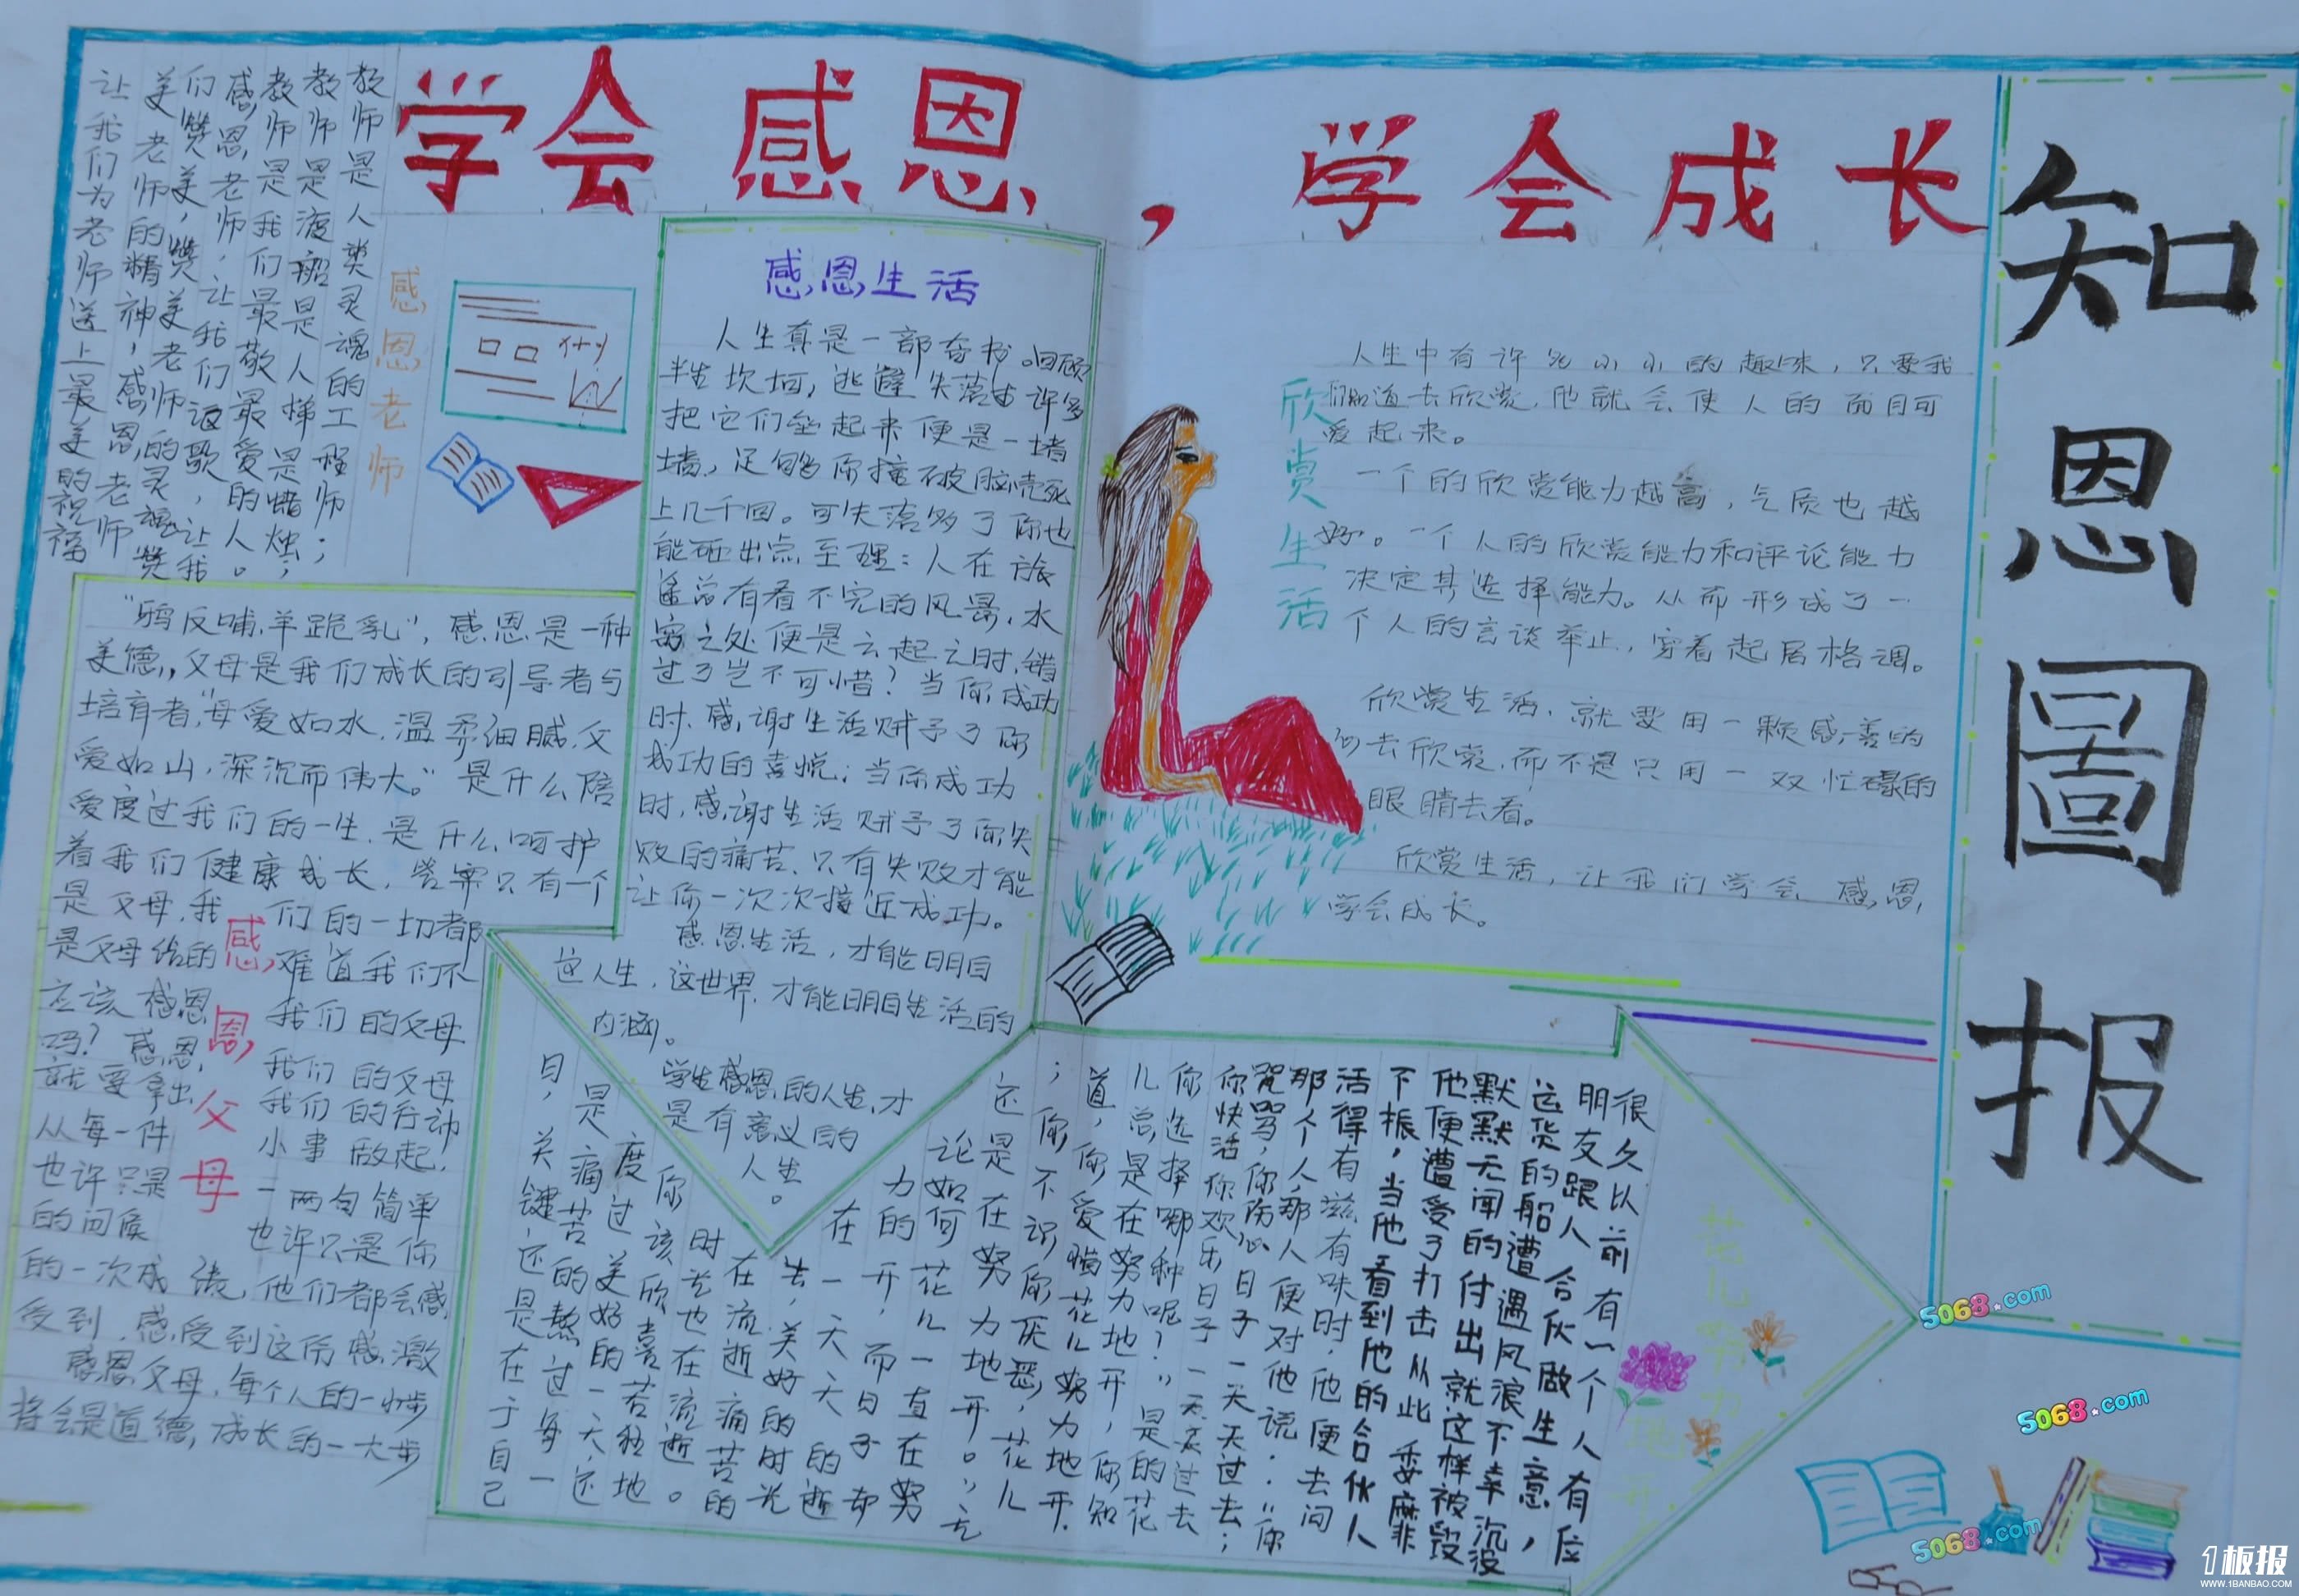 学会感恩，学会成长
知恩圖报
感恩老师
教师是人类灵魂的工程师；
教师是渡船是人梯是蜡烛；
教师是我们最敬最爱的人。
感恩老师，让我们讴歌，让我
们赞美，赞美老师的灵魂赞
美老师的精神，感恩老师
让我们为老师送上最美的祝福
感恩生活
人生真是一部奇书。回顾
半生坎坷，逃避失落出许多
把它们垒起来便是一堵
墙，足够你撞破脑壳死
上几千回。可失落多了你也
能砸出点至理：人在旅
途总有看不完的风景，水
穷之处便是云起之时，错
过了岂不可惜？当你成功
时，感谢生活赋予了你
成功的喜悦；当你成功
时，感谢生活赋予了你失
败的痛苦，只有失败才能
让你一次次接近成功。
感恩生活，才能明白
这人生，这世界，才能明白生活的
内涵。
学生感恩的人生，才
是有意义的
人生。
欣赏生活
人生中有许多小小的趣味，只要我
们知道去欣赏，他就会使人的面目可
爱起来。
一个的欣赏能力越高，气质也越
好。一个人的欣赏能力和评论能力
决定其选择能力。从而形成了一
个人的言谈举止，穿着起居格调。
欣赏生活，就要用一颗感善的
心去欣赏，而不是只用一双忙碌的
眼睛去看。
欣赏生活，让我们学会感恩，
学会成长。
感恩父母
“鸦反哺，羊跪乳”，感恩是一种
美德，父母是我们成长的引导者与
培育者，“母爱如水，温柔细腻，父
爱如山，深沉而伟大。”是什么陪
爱度过我们的一生，是什么呵护
着我们健康成长，答案只有一个
是父母，我们的一切都
是父母给的难道我们不
应该感恩我们的父母
吗？感恩我们的父母
就要拿出我们的行动
从每一件小事做起，
也许只是一两句简单
的问候也许只是你
的一次成绩，他们都会感
受到，感受到这份感激
感恩父母，每个人的一小步
将会是道德，成长的一大步
花儿努力地开
很久以前有一个人有位
朋友跟人合伙做生意，
运货的船遭遇风浪不幸沉没
默默无闻的付出就这样被毁
他便遭受了打击从此委靡
下振，当他看到他的合伙人
活得有滋有味时，他便去问
那个人，那人便对他说：“你
咒骂，你伤心日子一天天过去；
你快活你欢乐日子一天天过去
你选择哪种呢？”是的花
儿总是在努力地开，你知
道，你爱惜花儿努力地开
；你不识你厌恶，花儿
还是在努力地开。”无
论如何花儿一直在努
力的开，而日子却
在一天天的逝
去，美好的时光
在流逝痛苦的
时光也在流逝。
你该欣喜若狂地
度过美好的一天，还
是痛苦的熬过每一
日，关键还是在于自己
5068.com
5068.com
5068.com
1板报
WWW.1BANBAO.COM